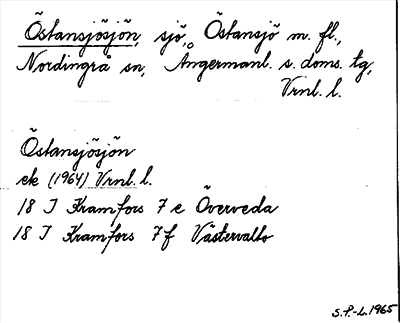 Östansjösjön, sjö, Östansjö m. fl.,
Nordingrå sn, Ångermanl. s. doms. tg,
Vrnl. l.
Östansjösjön
ek (1964) Vrnl. l.
18 J Kramfors 7 e Överveda
18 J Kramfors 7 f Västervalto
S.P.-L. 1965